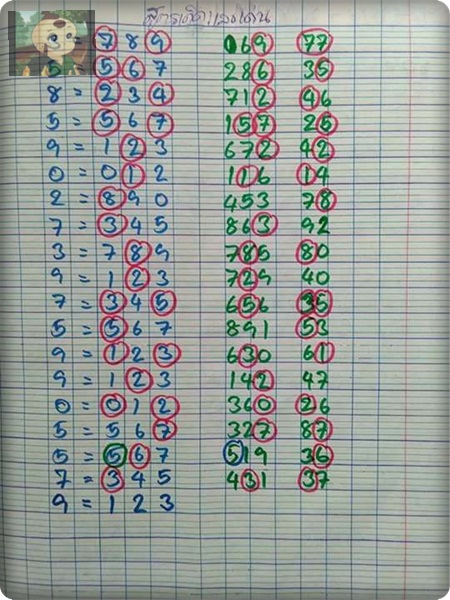 7 8 9 069 77
5 = 5 6 7 286 35
8 = 2 3 4 712 46
5 = 5 6 7 157 25
9 = 1 2 3 672 42
0 = 0 1 2 116 14
2 = 8 9 0 453 78
7 = 3 4 5 863 92
3 = 7 8 9 785 80
9 = 1 2 3 729 40
7 = 3 4 5 656 35
5 = 5 6 7 891 53
9 = 1 2 3 630 61
9 = 1 2 3 142 47
0 = 0 1 2 360 26
5 = 5 6 7 327 87
5 = 5 6 7 519 36
7 = 3 4 5 431 37
9 = 1 2 3